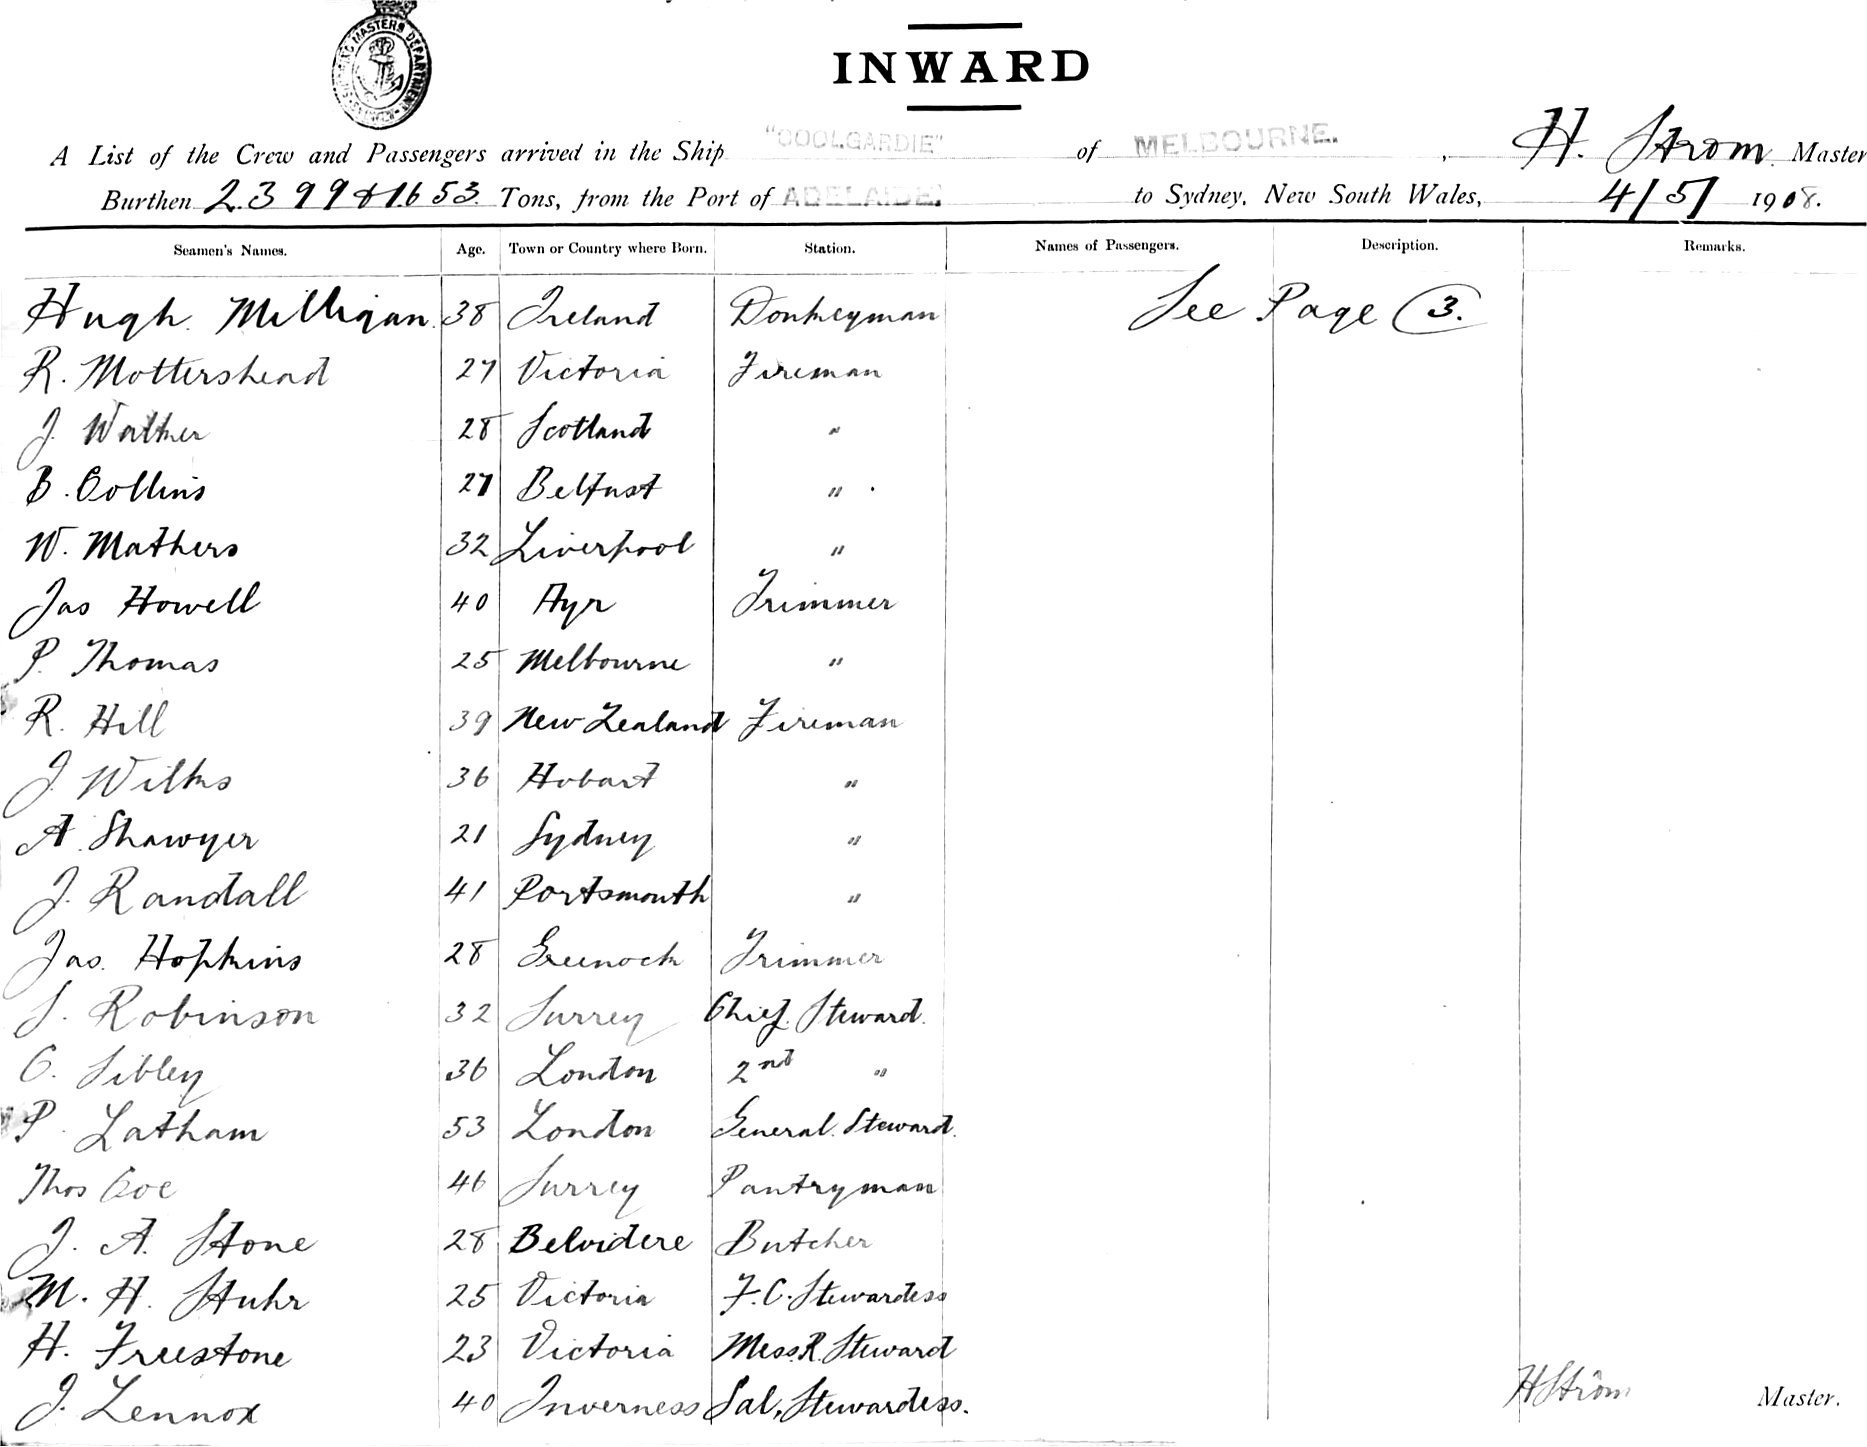 SHIPPING MASTERS DEPARTMENT
INWARD
A List of the Crew and Passengers arrived in the Ship "COOLGARDIE" of MELBOURNE. , H. Strom Master
Burthen 2399 & 1653 Tons, from the Port of ADELAIDE. to Sydney, New South Wales, 4/5/ 1908.
Seamen's Names. Age. Town or Country where Born. Station. Names of Passengers. Description. Remarks.
Hugh Milligan 38 Ireland Donkeyman See Page 3.
R. Mottershead 27 Victoria Fireman
J. Walker 28 Scotland "
B. Collins 27 Belfast "
W. Mathers 32 Liverpool "
Jas Howell 40 Ayr Trimmer
P. Thomas 25 Melbourne "
R. Hill 39 New Zealand Fireman
J. Wilks 36 Hobart "
A. Shawyer 21 Sydney "
J. Randall 41 Portsmouth "
Jas. Hopkins 28 Greenock Trimmer
S. Robinson 32 Surrey Chief Steward.
C. Sibley 36 London 2nd "
P. Latham 53 London General Steward.
Thos Coe 46 Surrey Pantryman
J. A. Stone 28 Belvidere Butcher
M. H. Stuhr 25 Victoria F.C. Stewardess
H. Freestone 23 Victoria Mess.R. Steward
J. Lennox 40 Inverness Sal. Stewardess.
H Strom Master.